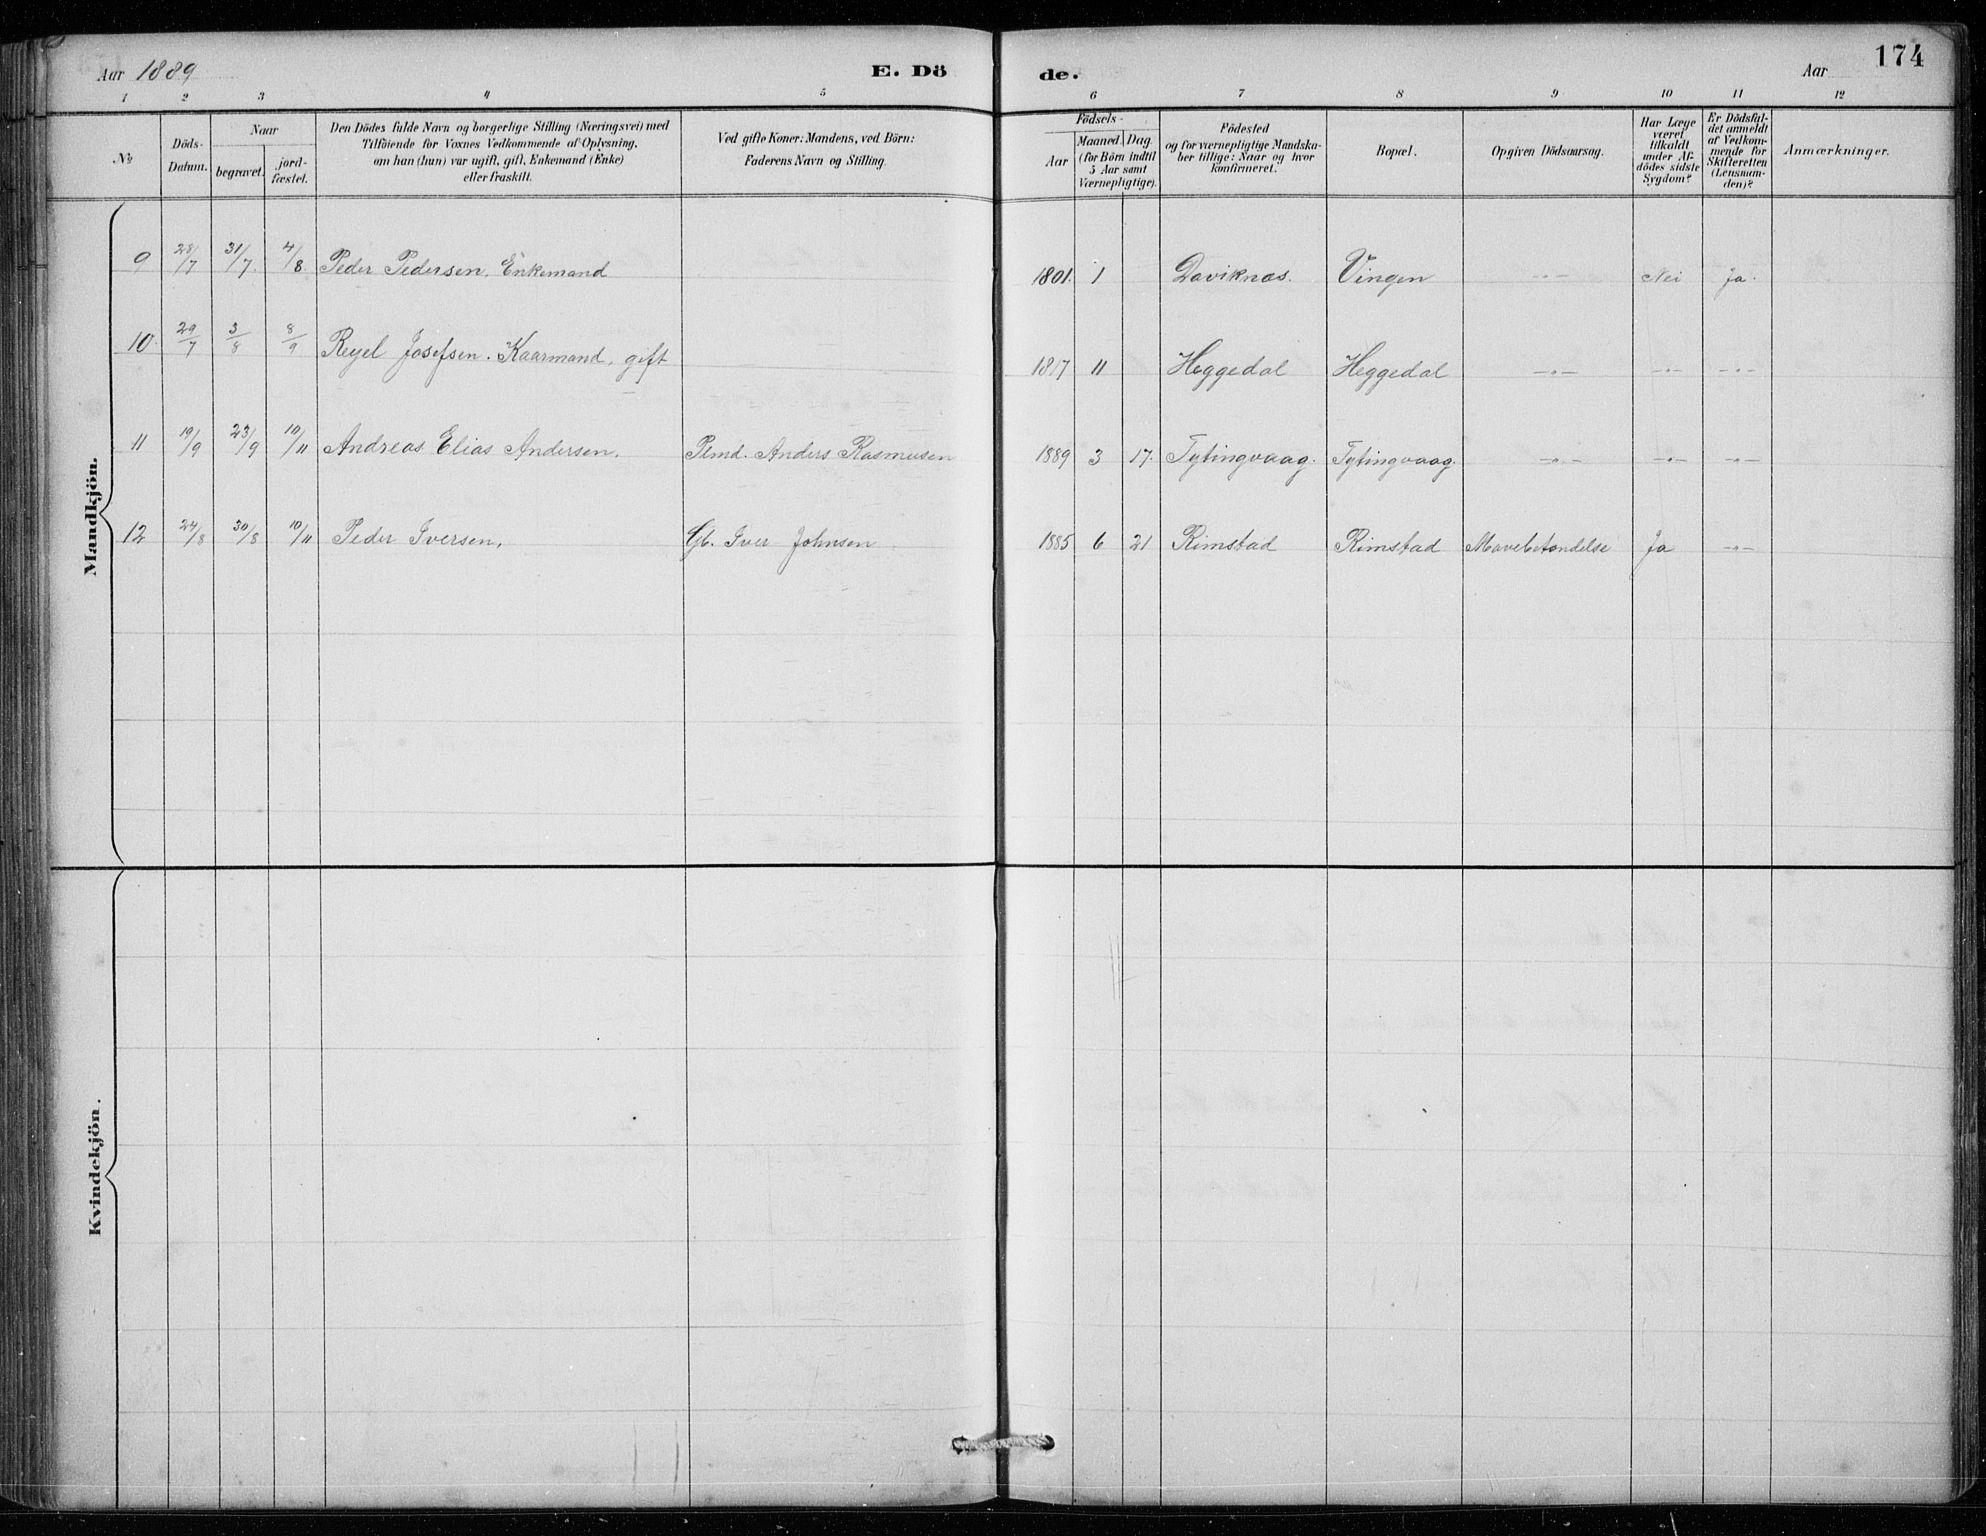 Aar 1889 E. Dö de. Aar 174
1 2 3 4 5 6 7 8 9 10 11 12
No
Döds-
Datum.
Naar
begravet.
jord-
fæstet.
Den Dödes fulde Navn og borgerlige Stilling (Næringsvei) med
Tilföiende for Voxnes Vedkommende af Oplysning,
om han (hun) var ugift, gift, Enkemand (Enke)
eller fraskilt.
Ved gifte Koner: Mandens, ved Börn:
Faderens Navn og Stilling.
Födsels-
Aar
Maaned. Dag
(for Börn indtil
5 Aar samt
Værnepligtige).
Födested
og for værnepligtige Mandska-
ber tillige: Naar og hvor
konfirmeret.
Bopæl.
Opgiven Dödsaarsag.
Har Læge
været
tilkaldt
under Af-
dödes sidste
Sygdom?
Er Dödsfal-
det anmeldt
af Vedkom-
mende for
Skifteretten
(Lensman-
den)?
Anmærkninger.
Mandkjön.
9 28/7 31/7. 4/8. Peder Pedersen, Enkemand 1801. 1 Daviknæs. Vingen -"- Nei Ja.
10. 29/7 3/8 8/9 Reyel Josefsen. Kaarmand, gift 1817 11 Heggedal Heggedal -"- -"- -"-
11 19/9 23/9 10/11 Andreas Elias Andersen. Plmd. Anders Rasmusen 1889 3 17. Tytingvaag. Tytingvaag. -"- -"- -"-
12 24/8 30/8 10/11 Peder Iversen, Gb. Iver Johnsen 1885 6 21 Rimstad Rimstad Mavebetændelse Ja -"-
Kvindekjön.